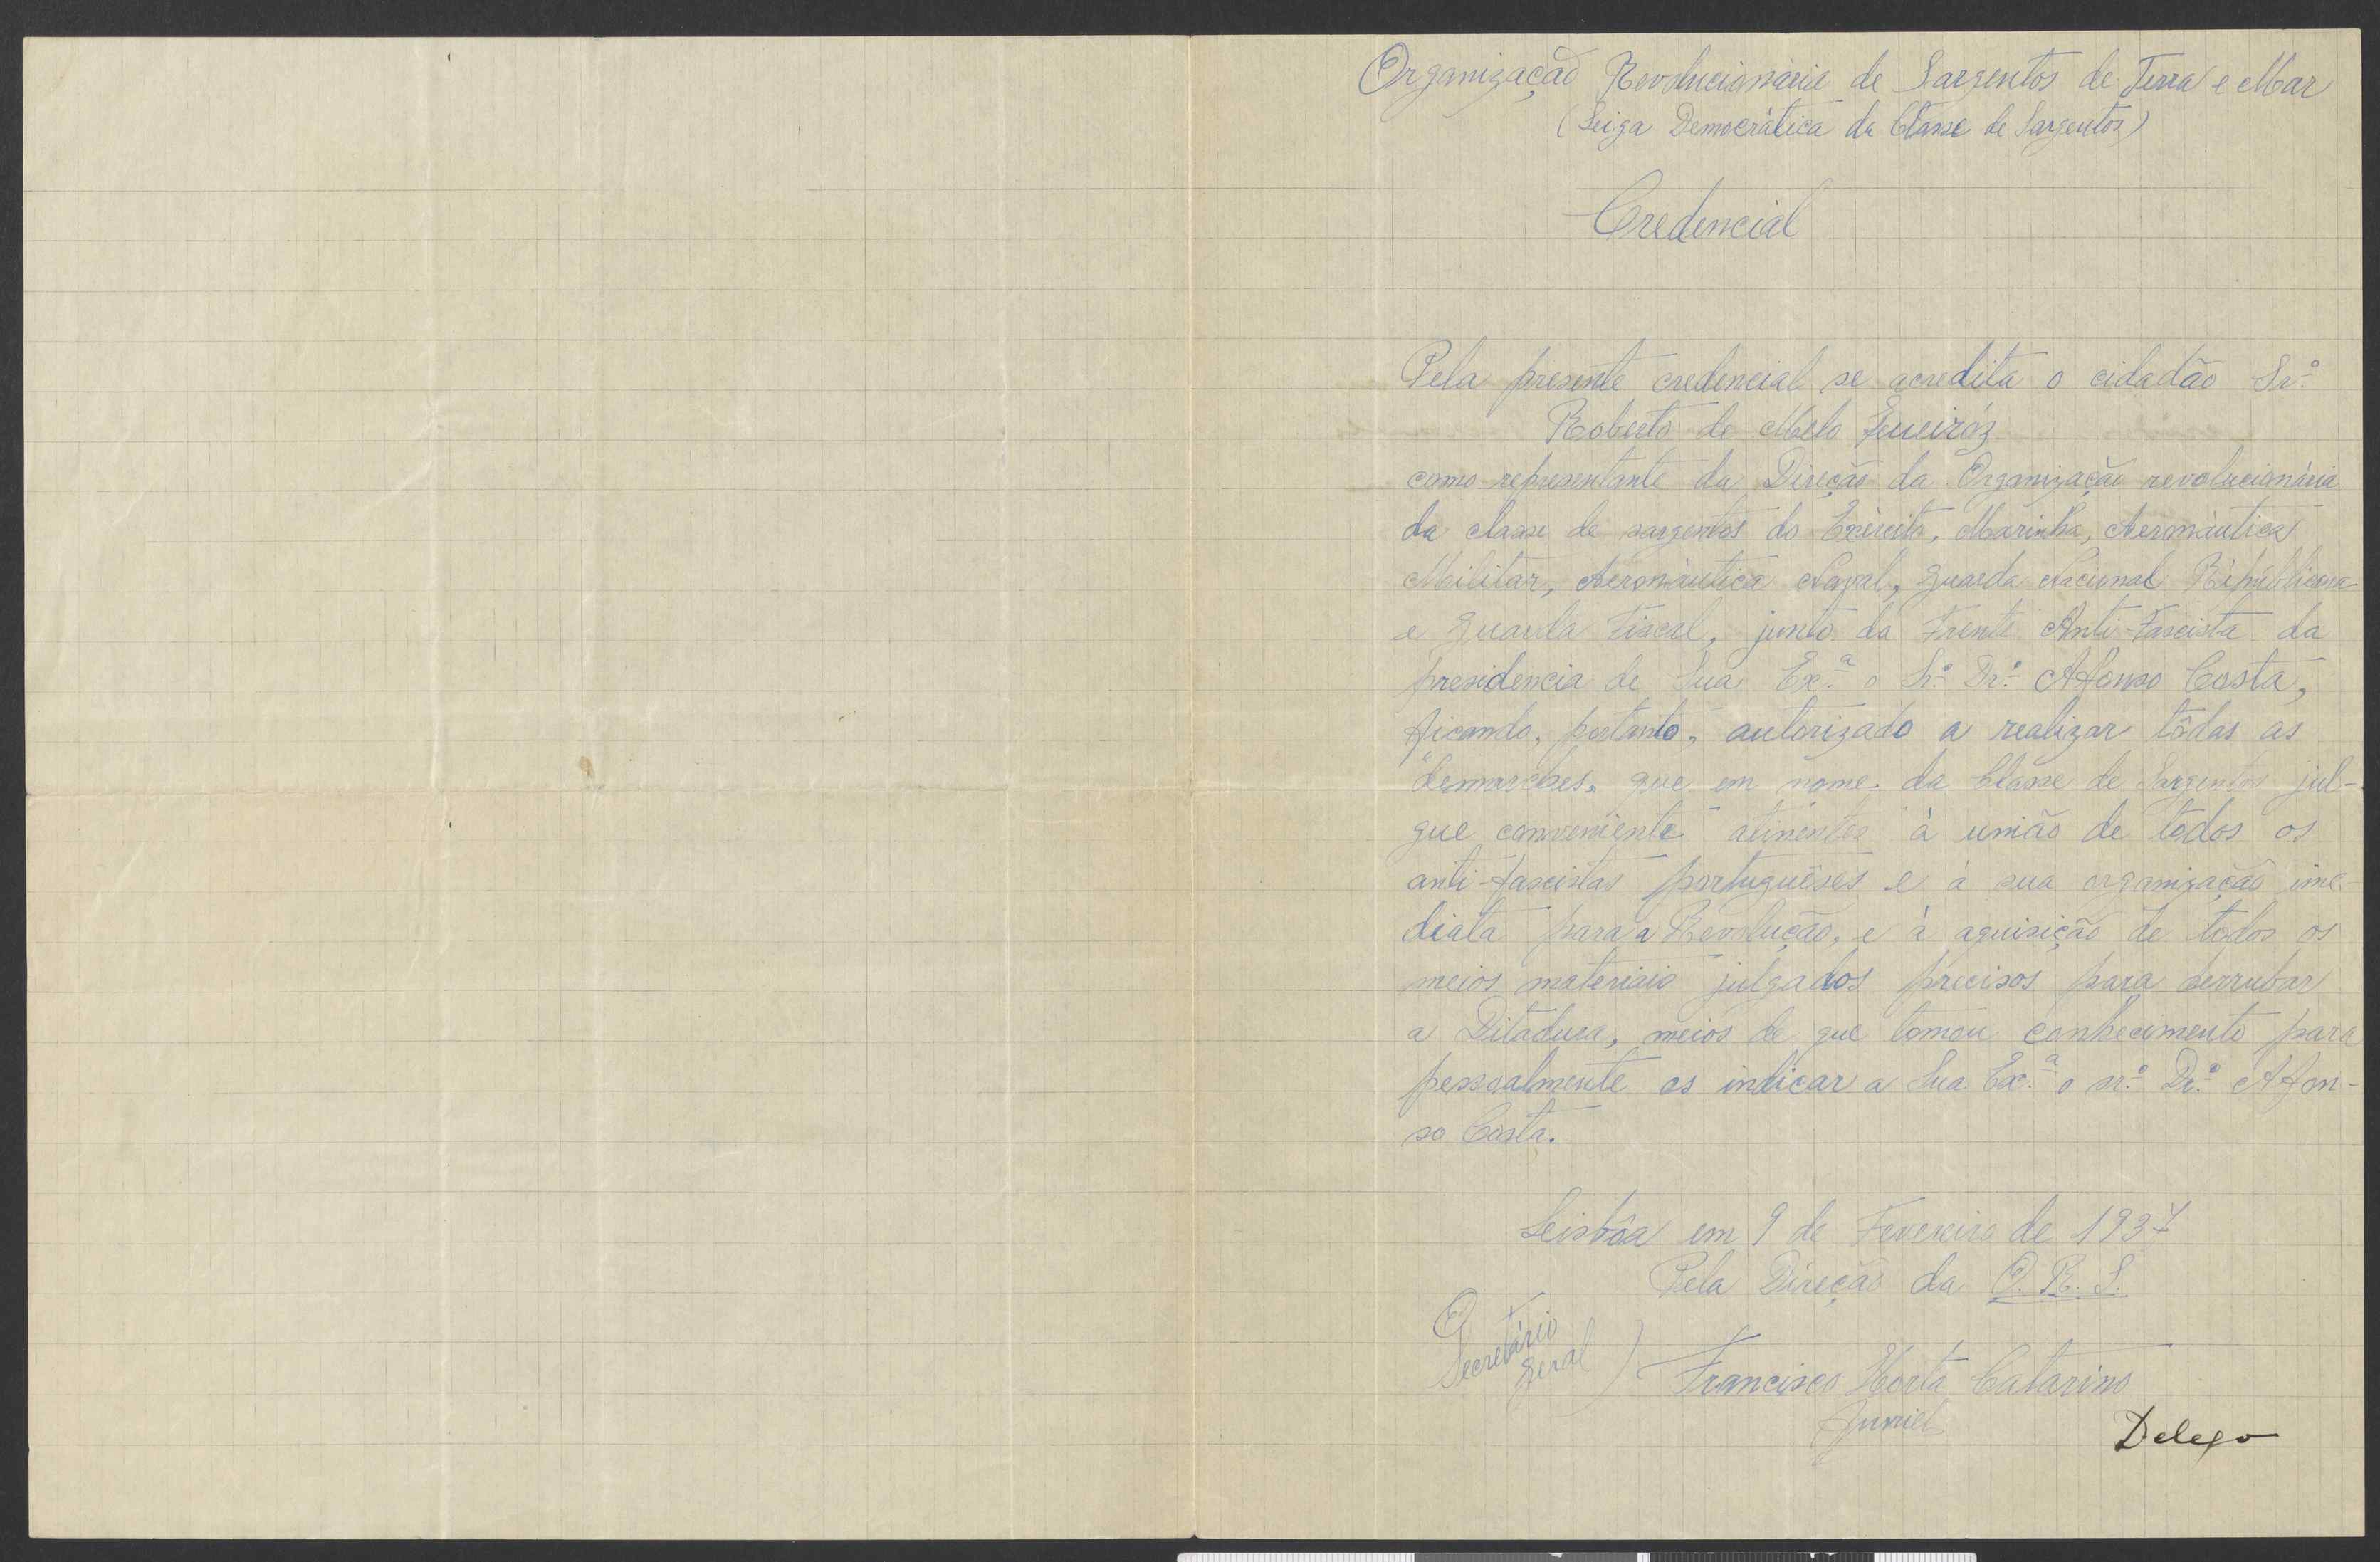 Organização Revolucionária de Sargentos de Terra e Mar
(Leiga Democrática da Classe de Sargentos)
Credencial
Pela presente credencial se acredita o cidadão Sr.º
Roberto de Melo Queiróz
como representante da Direção da Organização revolucionária
da classe de sargentos do Exército, Marinha, Aeronáutica
Militar, Aeronáutica Naval, Guarda Nacional Républicana
e Guarda Fiscal, junto da Frente Anti-Fascista da
presidencia de Sua Ex.ª o Sr.º Dr.º Afonso Costa,
ficando, portanto, autorizado a realizar tôdas as
"demarches" que em nome da Classe de Sargentos jul-
gue conveniente atinentes à união de todos os
anti-fascistas portuguêses e à sua organização ime-
diata para a Revolução, e à aquisição de todos os
meios materiais julgados precisos para derrubar
a Ditadura, meios de que tomou conhecimento para
pessoalmente os indicar a Sua Ex.ª o sr.º Dr.º Afon-
so Costa.
Leisbôa em 9 de Fevereiro de 1937
Pela Direção da O.R.S.
O
Secretário
geral )
Francisco Horta Catarino
Delego